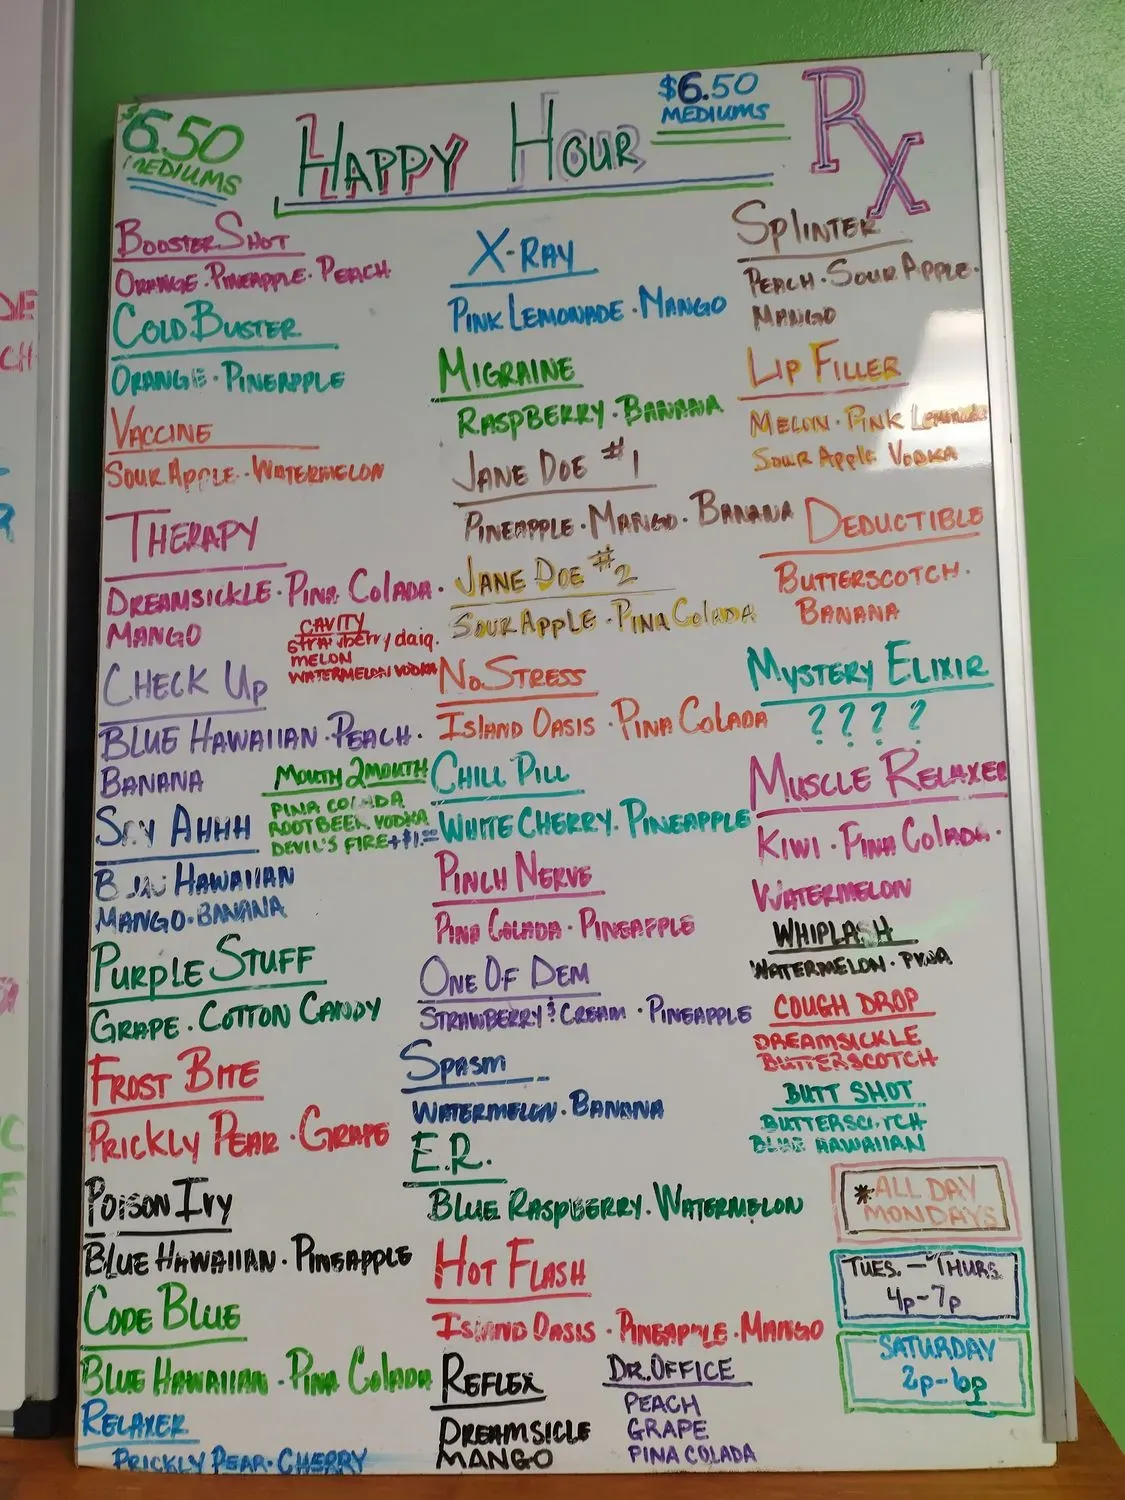 $6.50
MEDIUMS
HAPPY HOUR
$6.50
MEDIUMS
Rx
BOOSTER SHOT
ORANGE · PINEAPPLE · PEACH
COLD BUSTER
ORANGE · PINEAPPLE
VACCINE
SOUR APPLE · WATERMELON
THERAPY
DREAMSICKLE · PINA COLADA ·
MANGO
CAVITY
strawberry daiq.
MELON
WATERMELON VODKA
CHECK UP
BLUE HAWAIIAN · PEACH ·
BANANA
MOUTH 2 MOUTH
PINA COLADA
ROOTBEER VODKA
DEVIL'S FIRE +$1.00
SAY AHHH
HAWAIIAN
MANGO · BANANA
PURPLE STUFF
GRAPE · COTTON CANDY
FROST BITE
PRICKLY PEAR · GRAPE
POISON IVY
BLUE HAWAIIAN · PINEAPPLE
CODE BLUE
BLUE HAWAIIAN · PINA COLADA
RELAXER
PRICKLY PEAR · CHERRY
X-RAY
PINK LEMONADE · MANGO
MIGRAINE
RASPBERRY · BANANA
JANE DOE #1
PINEAPPLE · MANGO · BANANA
JANE DOE #2
SOUR APPLE · PINA COLADA
NO STRESS
ISLAND OASIS · PINA COLADA
CHILL PILL
WHITE CHERRY · PINEAPPLE
PINCH NERVE
PINA COLADA · PINEAPPLE
ONE OF DEM
STRAWBERRY & CREAM · PINEAPPLE
SPASM
WATERMELON · BANANA
E.R.
BLUE RASPBERRY · WATERMELON
HOT FLASH
ISLAND OASIS · PINEAPPLE · MANGO
REFLEX
DREAMSICLE
MANGO
DR. OFFICE
PEACH
GRAPE
PINA COLADA
SPLINTER
PEACH · SOUR APPLE ·
MANGO
LIP FILLER
MELON · PINK LEMONADE
SOUR APPLE VODKA
DEDUCTIBLE
BUTTERSCOTCH ·
BANANA
MYSTERY ELIXIR
? ? ? ?
MUSCLE RELAXER
KIWI · PINA COLADA ·
WATERMELON
WHIPLASH
WATERMELON · PINA
COUGH DROP
DREAMSICKLE
BUTTERSCOTCH
BUTT SHOT
BUTTERSCOTCH
BLUE HAWAIIAN
*ALL DAY
MONDAYS
TUES. - THURS.
4p-7p
SATURDAY
2p-6p